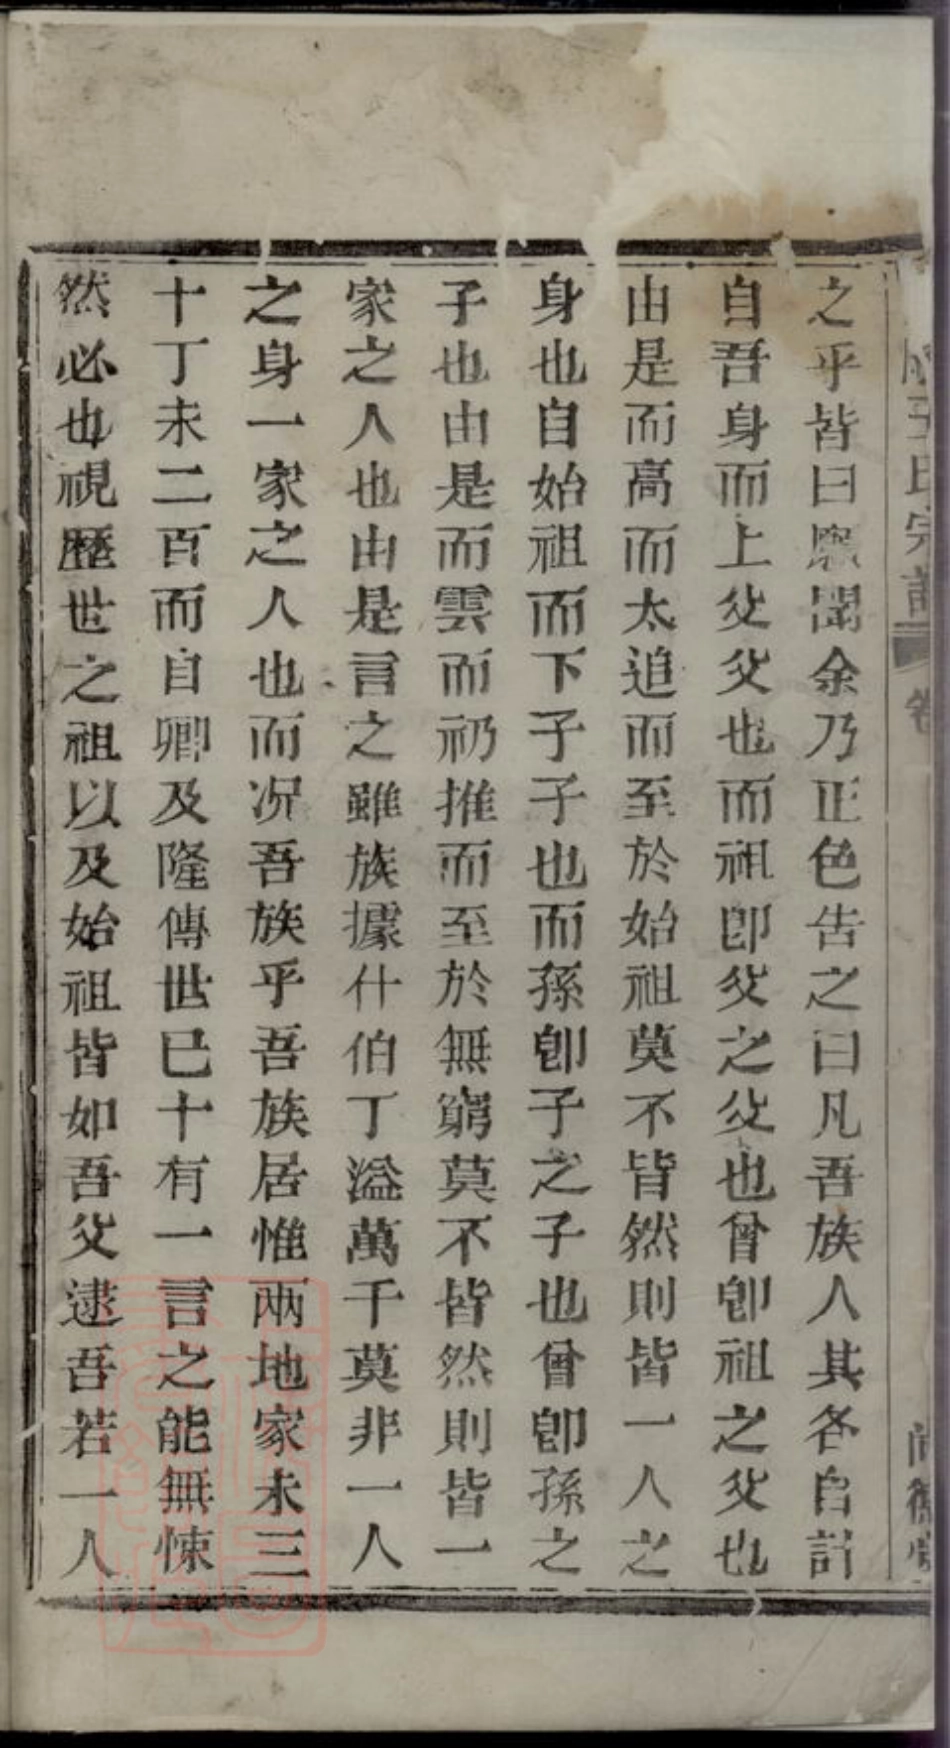 王氏宗譜
卷
之乎皆曰願聞余乃正色告之曰凡吾族人其各自計
自吾身而上父父也而祖卽父之父也曾卽祖之父也
由是而高而太追而至於始祖莫不皆然則皆一人之
身也自始祖而下子子也而孫卽子之子也曾卽孫之
子也由是而雲而礽推而至於無窮莫不皆然則皆一
家之人也由是言之雖族據什伯丁溢萬千莫非一人
之身一家之人也而况吾族乎吾族居惟兩地家未三
十丁未二百而自卿及隆傳世已十有一言之能無悚
然必也視歷世之祖以及始祖皆如吾父逮吾若一人